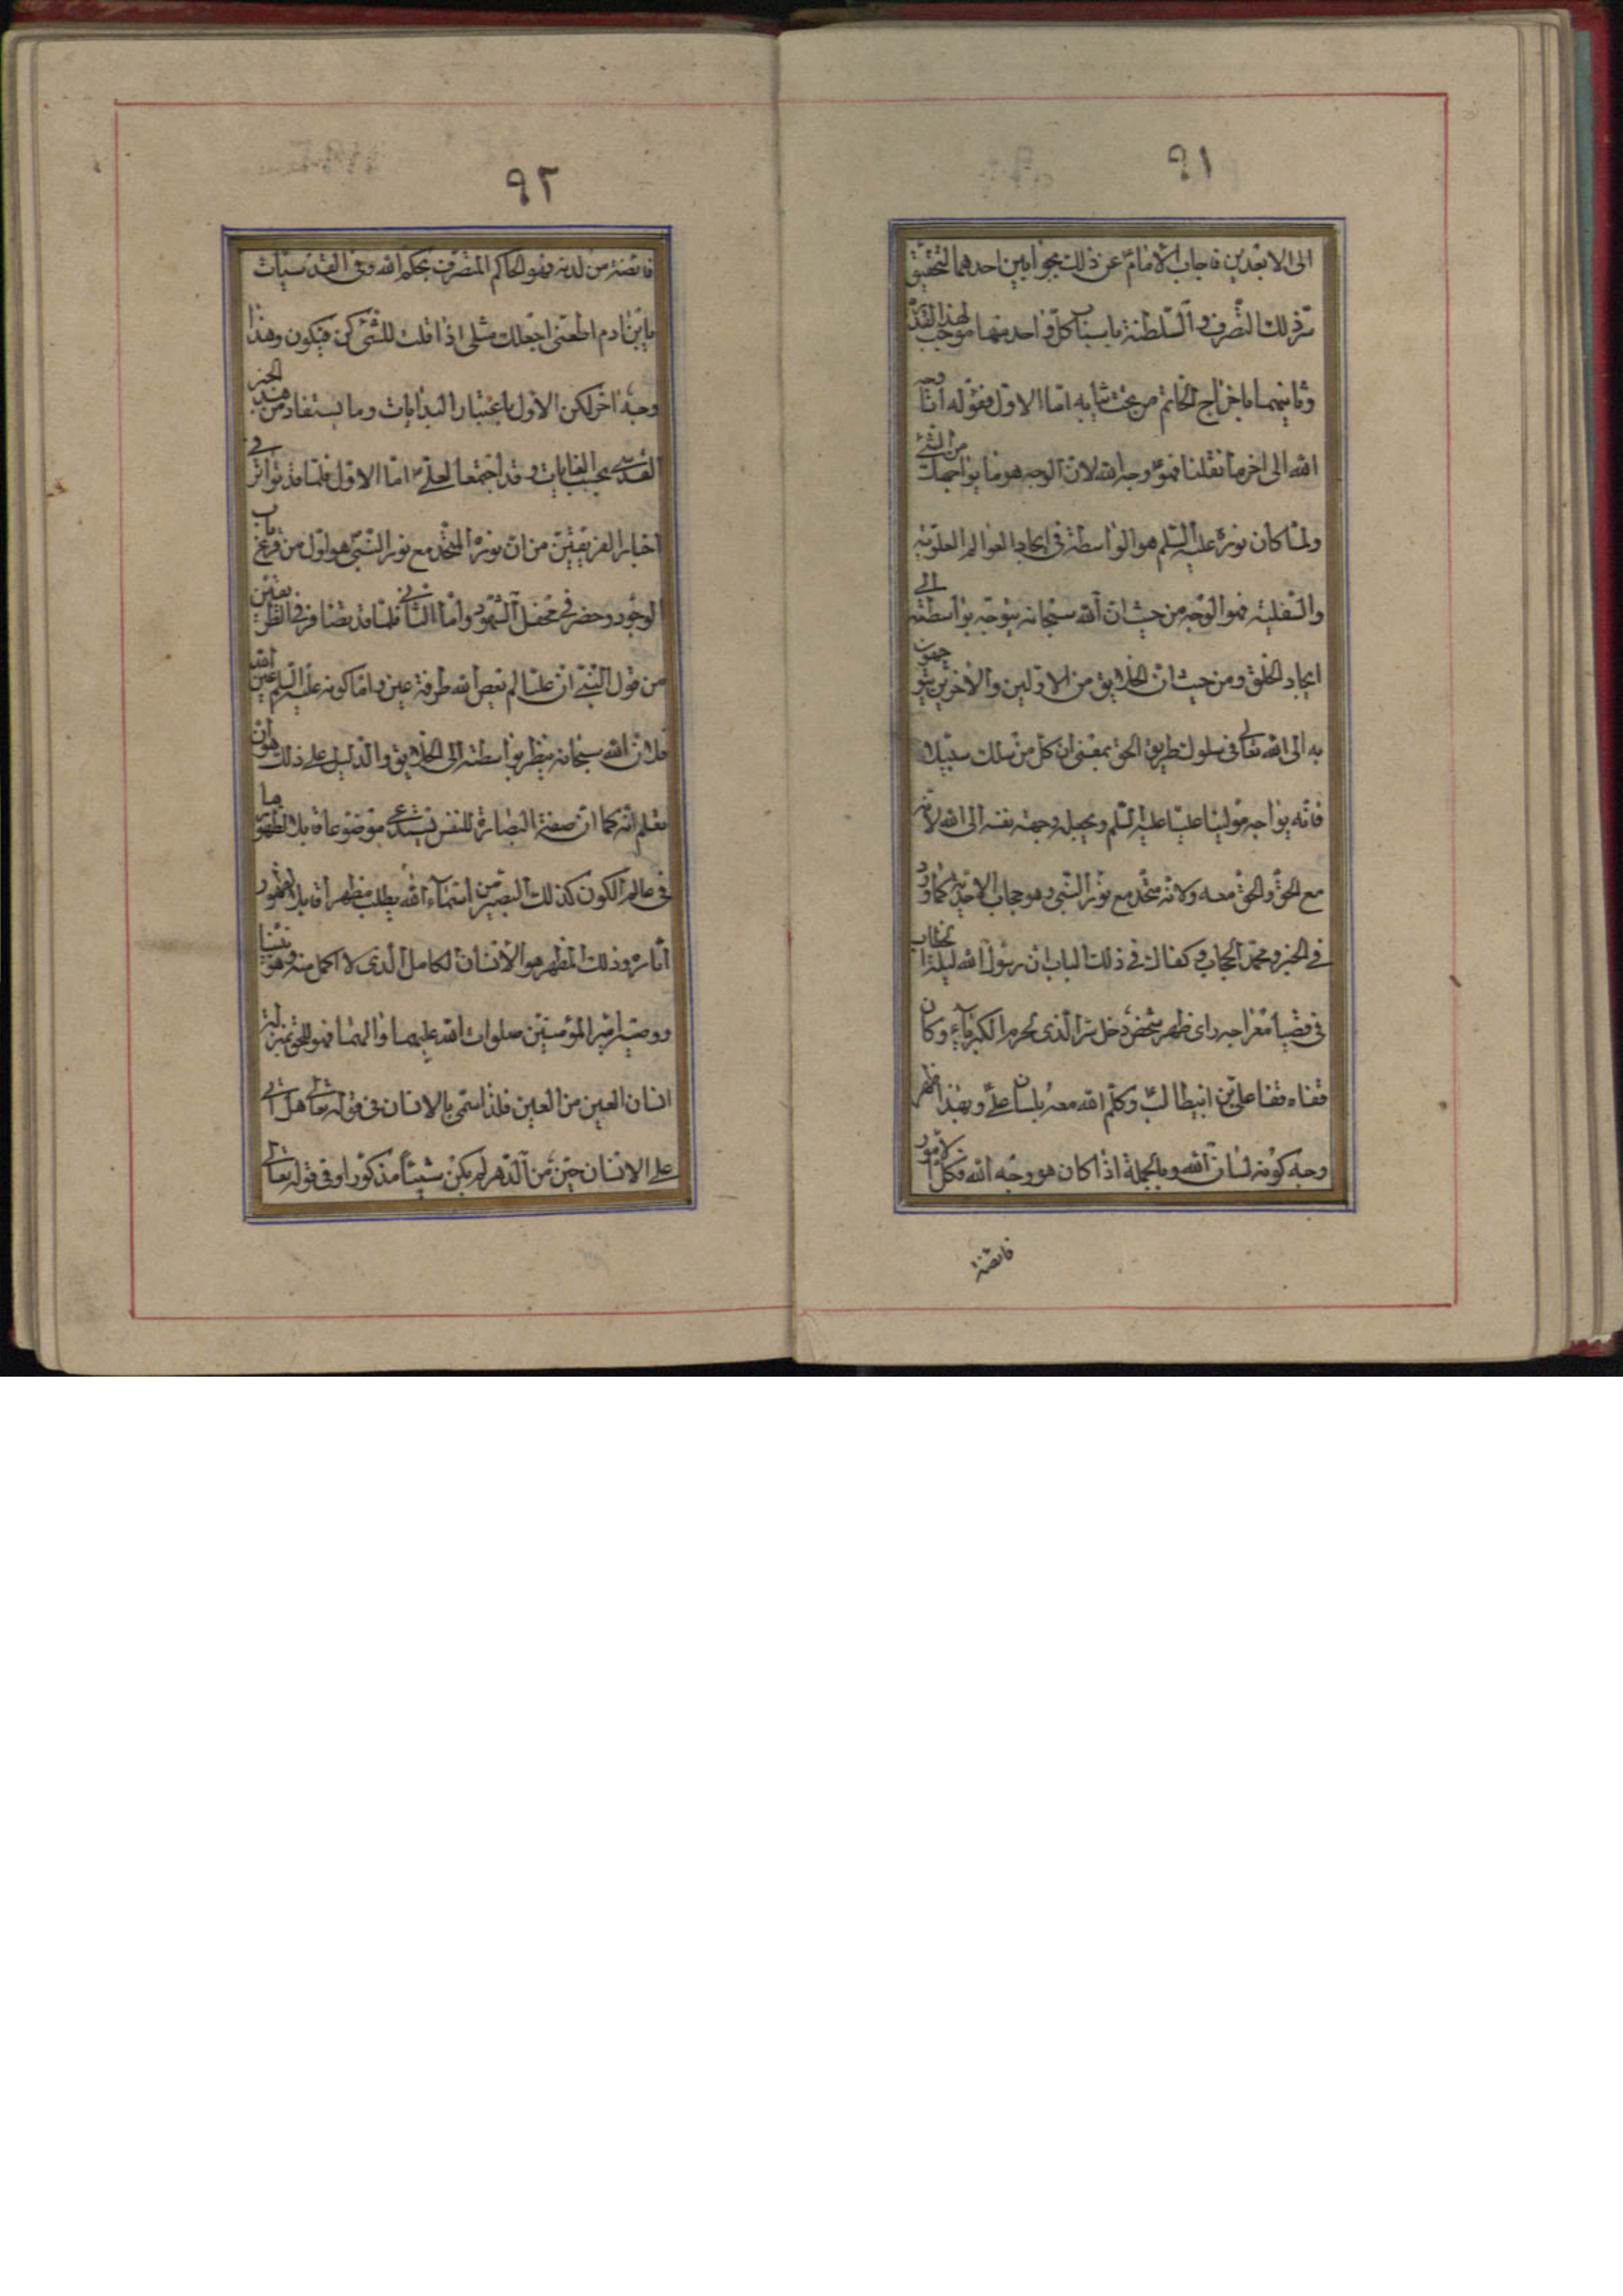 ٩١
الى الابعدين فاجاب الامام عن ذلك بجوابين احدهما لتحقيق
سر ذلك التصرف والسلطنة باسباب كل واحد منها موجب لهذا القدر
وثانيهما باخراج الخاتم من تحت ثيابه اما الاول فقوله انا وجه
الله الى اخر ما نقلنا فهو وجه الله لان الوجه هو ما يواجهك من الشئ
ولما كان نوره عليه السلم هو الواسطة فى ايجاد العوالم العلوية
والسفلية فهو الوجه من حيث ان الله سبحانه يتوجه بواسطته الى
ايجاد الخلق ومن حيث ان الخلايق من الاولين والاخرين يتوجهون
به الى الله تعالى فى سلوك طريق الحق بمعنى ان كل من سلك سبيلا
فانه يواجه مولينا عليا عليه السلم ويجعل وجهة نفسه الى الله لانه
مع الحق والحق معه ولانه متحد مع نور النبى وهو حجاب الاحدية كما ورد
فى الخبر ومحمد الحجاب وكفاك فى ذلك الباب ان رسول الله ليلة
فى قضيا معراجه راى ظهر شخص دخل سرا الذى لحرم الكبرياء وكان
قفاه قفا على بن ابيطالب وكلم الله معه بلسان على وبهذا ظهر
وجه كونه لسان الله وبالجملة اذا كان هو وجه الله فكل الامور
فائضة
٩٢
فائضة من لدنه وهو الحاكم المتصرف بحكم الله وفى القدسيات
يابن ادم اطعنى اجعلك مثلى اذا قلت للشئ كن فيكون وهذا
وجه اخر لكن الاول باعتبار البدايات وما يستفاد من هذا الخبر
القدسى بحسب الغايات وقد اجتمعا لعلى اما الاول فلما قد تواتر فى
اخبار الفريقين من ان نوره المتحد مع نور النبى هو اول من قرع باب
الوجود وحضر فى محفل الشهود واما الثانى فلما قد تضافر فى الطريقين
من قول النبى ان عليا لم يعص الله طرفة عين واما كونه عليه السلم عين الله
فلان الله سبحانه ينظر بواسطته الى الخلايق والدليل على ذلك هو ان
تعلم انه كما ان صفة البصارة للنفس تستدعى موضوعا قابلا لظهورها
فى عالم الكون كذلك البصير من اسماء الله يطلب مظهرا قابلا لظهور
آثاره وذلك المظهر هو الانسان الكامل الذى لا اكمل منه وهو نبينا
ووصيه امير المؤمنين صلوات الله عليهما والهما فهو للحق بمنزلة
انسان العين من العين فلذا سمى بالانسان فى قوله تعالى هل اتى
على الانسان حين من الدهر لم يكن شيئا مذكورا وفى قوله تعالى